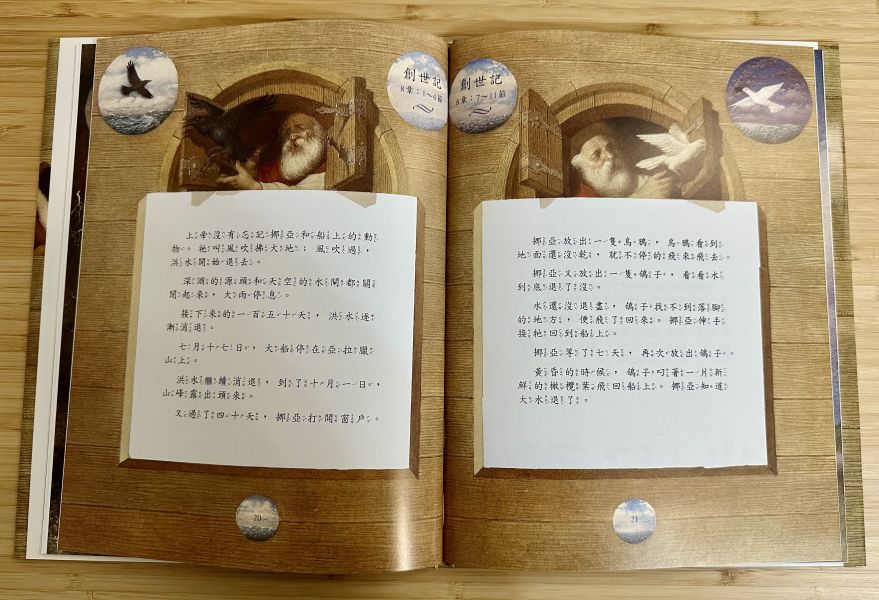 創世記
8章：1～6節
上帝沒有忘記挪亞和船上的動
物。祂叫風吹拂大地；風吹過，
洪水開始退去。
深淵的源頭和天空的水閘都關
閉起來，大雨停息。
接下來的一百五十天，洪水逐
漸消退。
七月十七日，大船停在亞拉臘
山上。
洪水繼續消退，到了十月一日，
山峰露出頭來。
又過了四十天，挪亞打開窗戶。
20
創世記
8章：7～11節
挪亞放出一隻烏鴉，烏鴉看到
地面還沒乾，就不停的飛來飛去。
挪亞又放出一隻鴿子，看看水
到底退了沒。
水還沒退盡，鴿子找不到落腳
的地方，便飛了回來。挪亞伸手
接牠回到船上。
挪亞等了七天，再次放出鴿子。
黃昏的時候，鴿子叼著一片新
鮮的橄欖葉飛回船上。挪亞知道
大水退了。
21